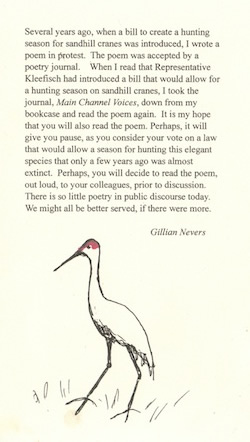 Several years ago, when a bill to create a hunting
season for sandhill cranes was introduced, I wrote a
poem in protest. The poem was accepted by a
poetry journal. When I read that Representative
Kleefisch had introduced a bill that would allow for
a hunting season on sandhill cranes, I took the
journal, Main Channel Voices, down from my
bookcase and read the poem again. It is my hope
that you will also read the poem. Perhaps, it will
give you pause, as you consider your vote on a law
that would allow a season for hunting this elegant
species that only a few years ago was almost
extinct. Perhaps, you will decide to read the poem,
out loud, to your colleagues, prior to discussion.
There is so little poetry in public discourse today.
We might all be better served, if there were more.
Gillian Nevers